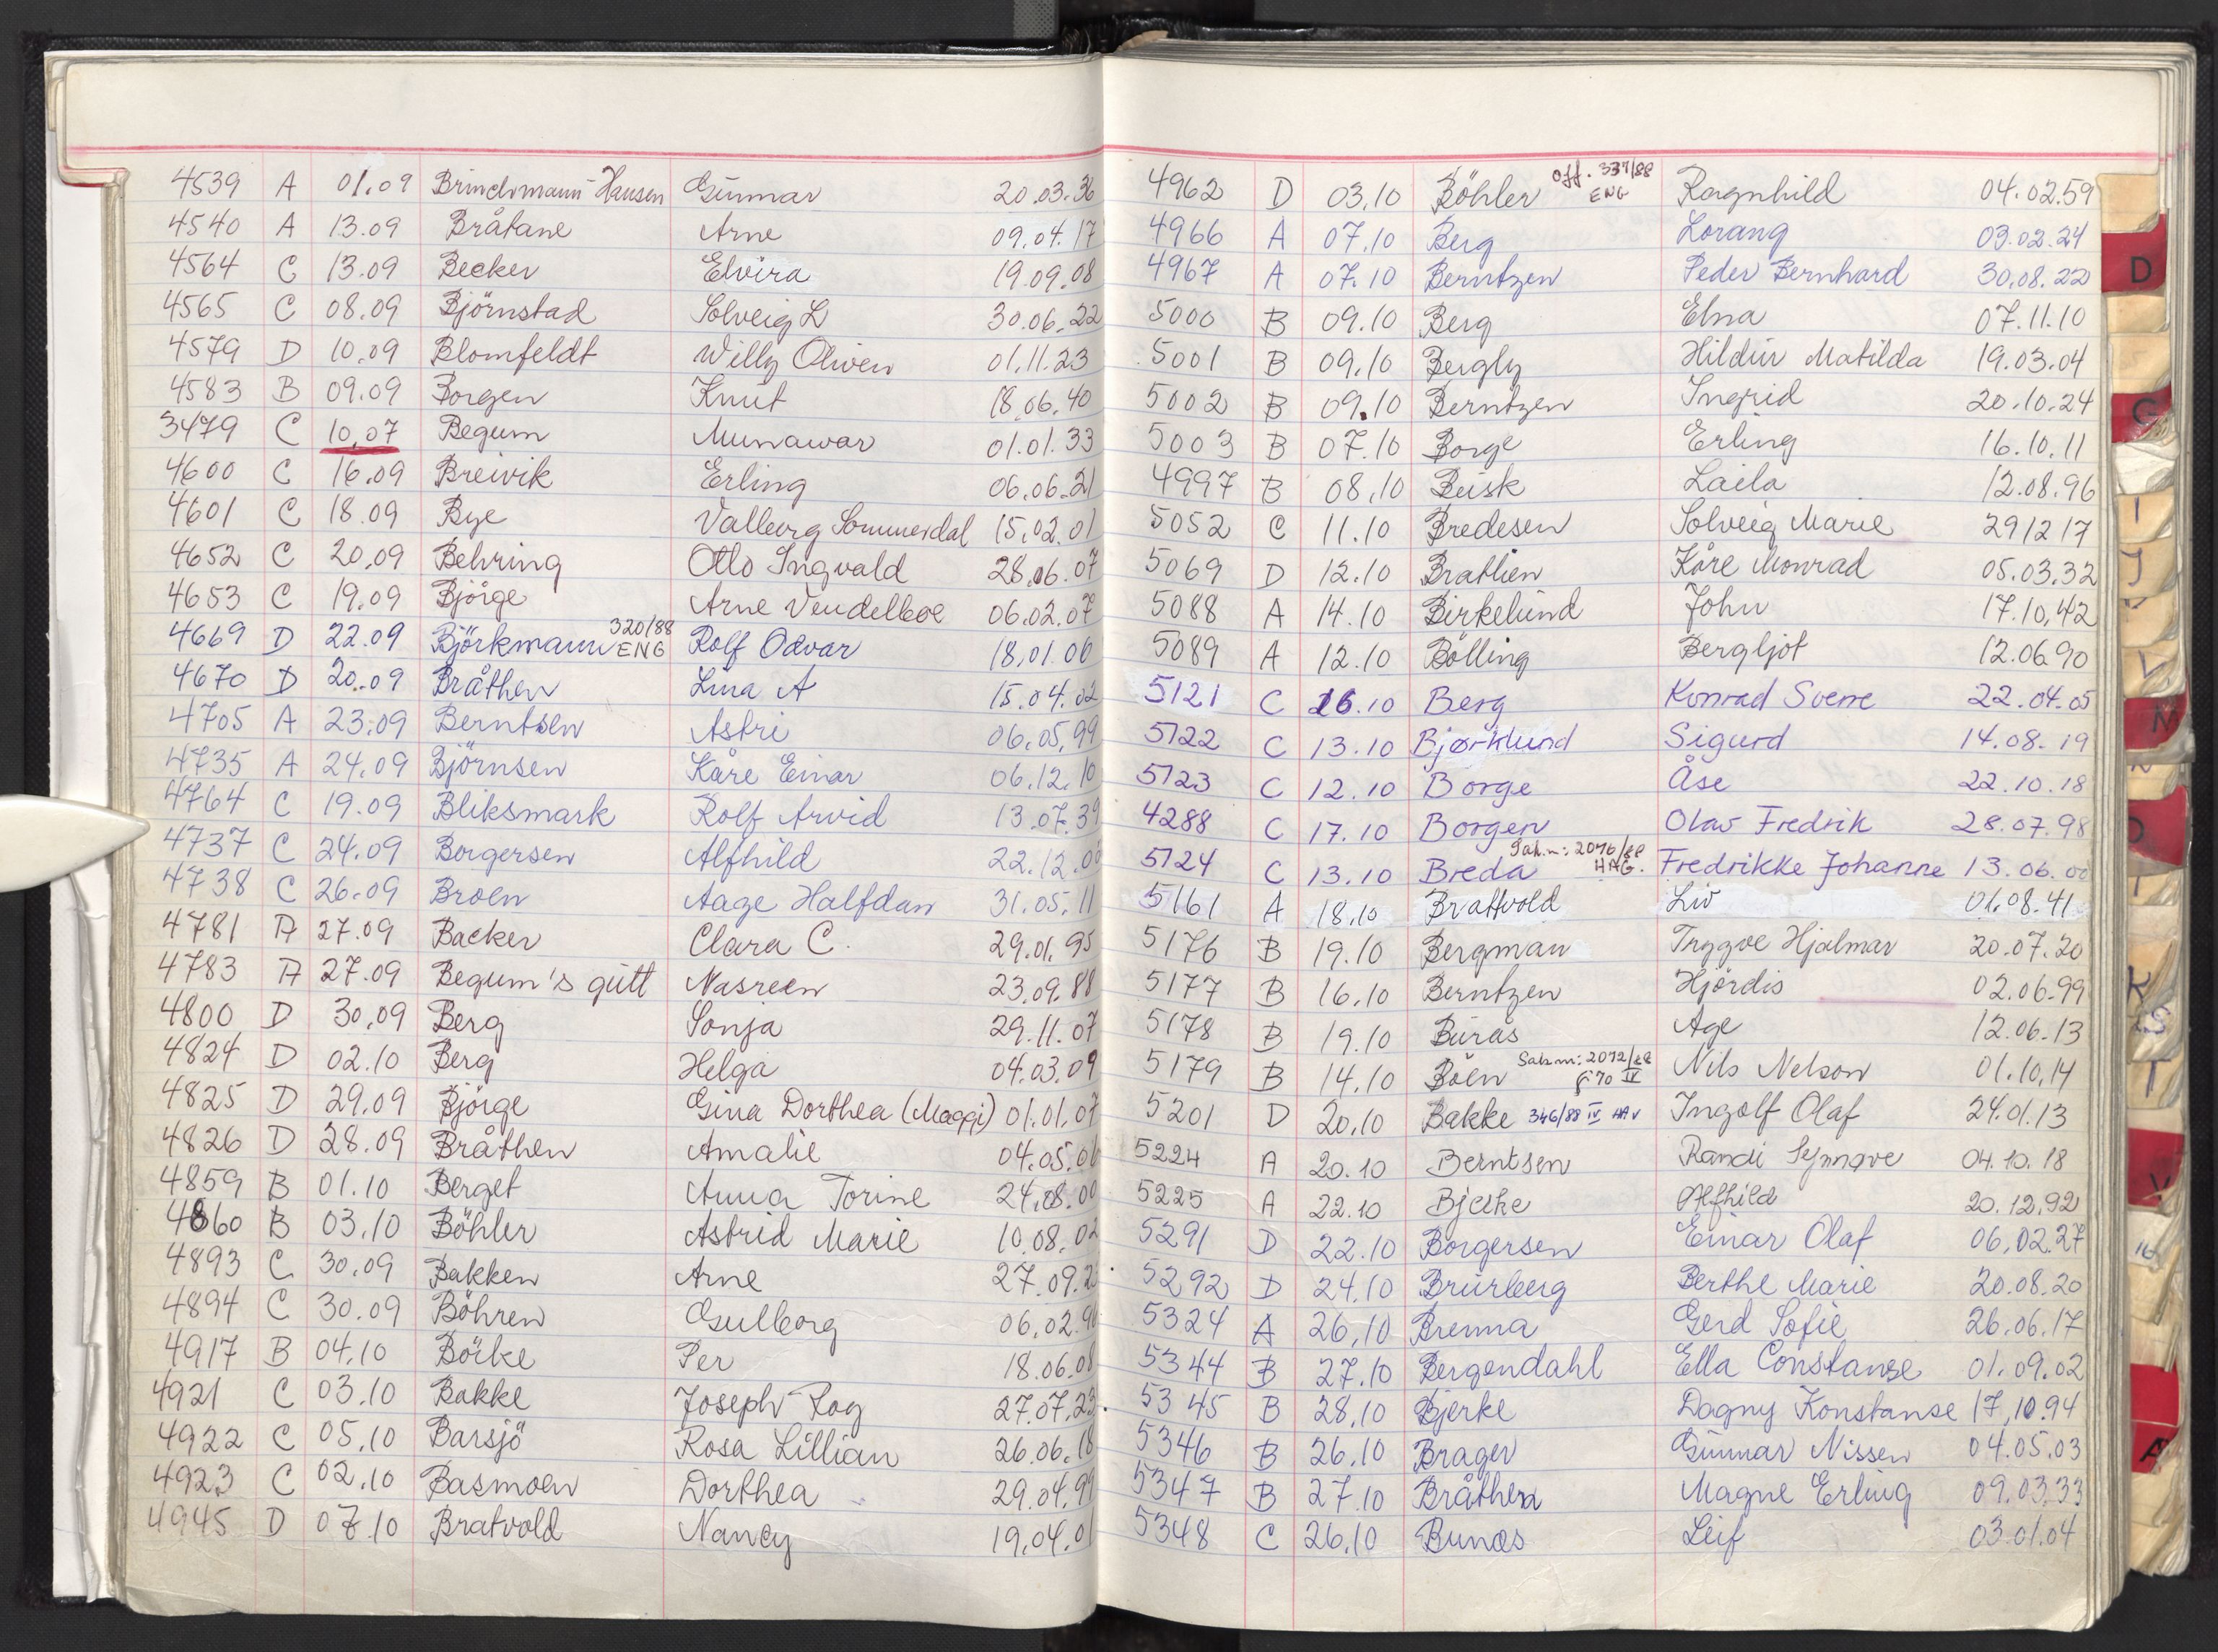 4539 A 01.09 Brinchmann-Hansen Gunnar 20.03.36
4540 A 13.09 Bråtane Arne 09.04.17
4564 C 13.09 Becker Elvira 19.09.08
4565 C 08.09 Björnstad Solveig L 30.06.22
4579 D 10.09 Blomfeldt Willy Oliven 01.11.23
4583 B 09.09 Borgen Knut 18.06.40
3479 C 10.07 Begum Munawar 01.01.33
4600 C 16.09 Breivik Erling 06.06.21
4601 C 18.09 Bye Valborg Sommerdal 15.02.01
4652 C 20.09 Behring Otto Ingvald 28.06.07
4653 C 19.09 Björge Arne Vendelboe 06.02.07
4669 D 22.09 Björkmann 320/88 ENG Rolf Odvar 18.01.06
4670 D 20.09 Bråthen Lina A 15.04.02
4705 A 23.09 Berntsen Astri 06.05.99
4735 A 24.09 Björnsen Kåre Einar 06.12.10
4764 C 19.09 Bliksmark Rolf Arvid 13.07.39
4737 C 24.09 Borgersen Alfhild 22.12.0
4738 C 26.09 Broen Aage Halfdan 31.05.11
4781 A 27.09 Backer Clara C. 29.01.95
4783 A 27.09 Begum's gutt Nasreen 23.09.88
4800 D 30.09 Berg Sonja 29.11.07
4824 D 02.10 Berg Helga 04.03.09
4825 D 29.09 Björge Gina Dorthea (Maggi) 01.01.07
4826 D 28.09 Bråthen Amalie 04.05.06
4859 B 01.10 Berget Anna Torine 24.08.00
4860 B 03.10 Böhler Astrid Marie 10.08.02
4893 C 30.09 Bakken Arne 27.09.2
4894 C 30.09 Böhren Gulborg 06.02.9
4917 B 04.10 Börke Per 18.06.08
4921 C 03.10 Bakke Joseph Roy 27.07.23
4922 C 05.10 Barsjö Rosa Lillian 26.06.18
4923 C 02.10 Basmoen Dorthea 29.04.99
4945 D 07.10 Bratvold Nancy 19.04.01
4962 D 03.10 Böhler Off. 337/88 ENG Ragnhild 04.02.59
4966 A 07.10 Berg Lorang 03.02.24
4967 A 07.10 Berntzen Peder Bernhard 30.08.22
5000 B 09.10 Berg Elna 07.11.10
5001 B 09.10 Bergly Hildur Matilda 19.03.04
5002 B 09.10 Berntzen Ingrid 20.10.24
5003 B 07.10 Borge Erling 16.10.11
4997 B 08.10 Beisk Laila 12.08.96
5052 C 11.10 Bredesen Solveig Marie 29 12 17
5069 D 12.10 Brattlien Kåre Monrad 05.03.32
5088 A 14.10 Birkelund John 17.10.42
5089 A 12.10 Bölling Bergljot 12.06.90
5121 C 16.10 Berg Konrad Sverre 22.04.05
5122 C 13.10 Bjørklund Sigurd 14.08.19
5123 C 12.10 Borge Åse 22.10.18
4288 C 17.10 Borgen Olav Fredrik 28.07.98
5124 C 13.10 Breda Sak.n: 2076/88 HAG. Fredrikke Johanne 13.06.00
5161 A 18.10 Brattvold Liv 01.08.41
5176 B 19.10 Bergman Tryggve Hjalmar 20.07.20
5177 B 16.10 Berntzen Hjördis 02.06.99
5178 B 19.10 Burås Age 12.06.13
5179 B 14.10 Böen Sak.n: 2072/88 IV Nils Nelson 01.10.14
5201 D 20.10 Bakke 346/88 IV HAV Ingolf Olaf 24.01.13
5224 A 20.10 Berntsen Randi Synnøve 04.10.18
5225 A 22.10 Bjerke Alfhild 20.12.92
5291 D 22.10 Borgersen Einar Olaf 06.02.27
5292 D 24.10 Brurberg Berthe Marie 20.08.20
5324 A 26.10 Brenna Gerd Sofie 26.06.17
5344 B 27.10 Bergendahl Ella Constanse 01.09.02
5345 B 28.10 Bjerke Dagny Konstanse 17.10.94
5346 B 26.10 Brager Gunnar Nissen 04.05.03
5347 B 27.10 Bråthen Magne Erling 09.03.33
5348 C 26.10 Bunæs Leif 03.01.04
D
G
I
J
M
K
S
T
V
16